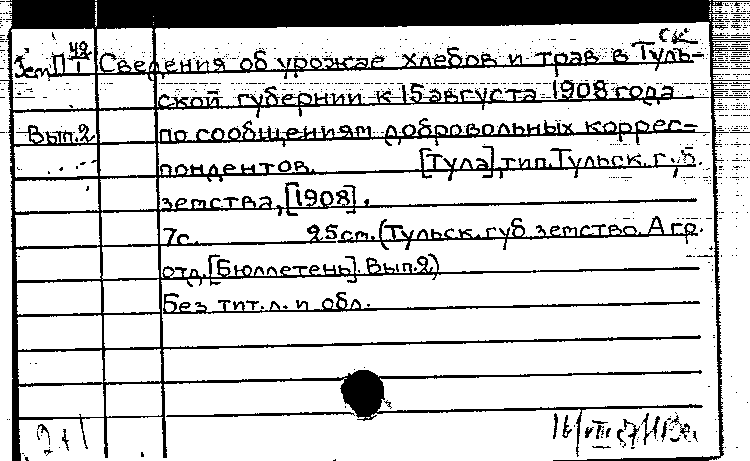 ск
Зем П 42/1 Сведения об урожае хлебов и трав в Туль-
ской губернии к 15 августа 1908 года
Вып. 2 по сообщениям добровольных коррес-
пондентов. [Тула], тип. Тульск. губ.
земства, [1908].
7с. 25cm. (Тульск. губ. земство. Агр.
отд. [Бюллетень]. Вып. 2)
Без тит. л. и обл.
2+1